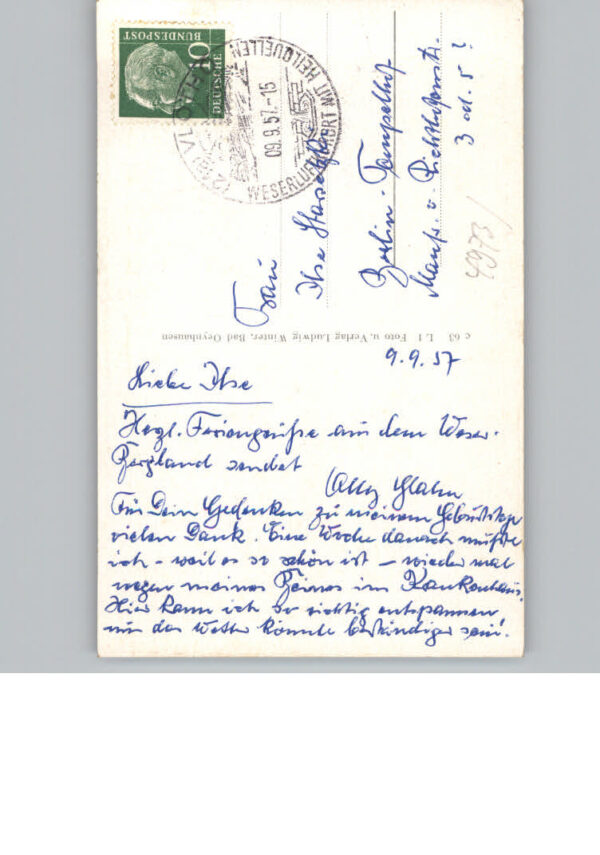 DEUTSCHE
BUNDESPOST
10
VLOTHO
WESERLUFTKURORT MIT HEILQUELLEN
09.9.57.-15
Frau
Ilse
Berlin-Tempelhof
Manfr. v. Richthofenstr.
3 od. 5?
4973/
c 63 L 1 Foto u. Verlag Ludwig Winter, Bad Oeynhausen
9.9.57
Liebe Ilse
Herzl. Feriengrüße aus dem Weser-
Bergland sendet
Für Dein Gedenken zu meinem Geburtstage
vielen Dank. Eine Woche danach mußte
ich - weil es so schön ist - wieder mal
wegen meines Beines im Krankenhaus.
Hier kann ich so richtig entspannen
nur das Wetter könnte beständiger sein!